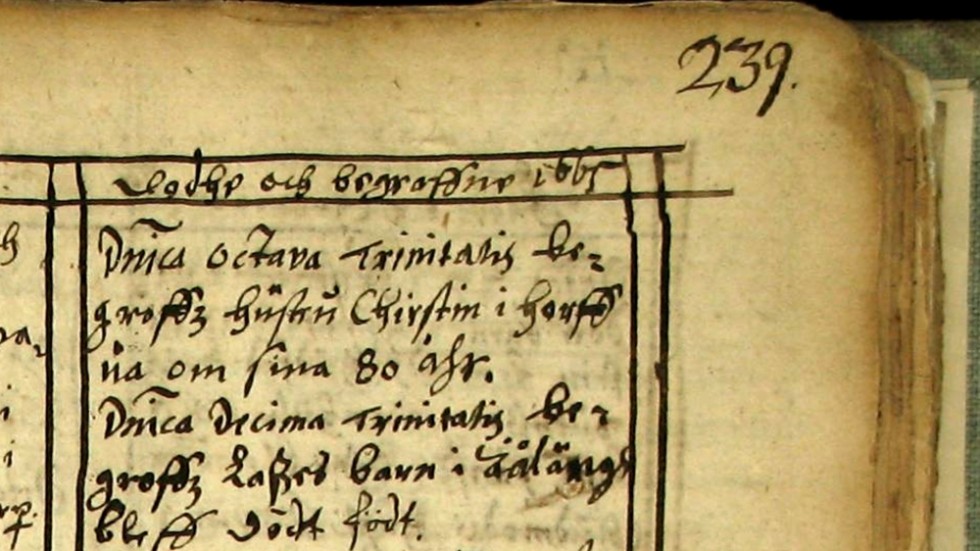 239.
Dödhe och begroffne 1665
Dn̄ica octava Trinitatis be-
groffz hüstrü Chirstin i horff
üa om sina 80 åhr.
Dn̄ica Decima Trinitatis be-
groffz Laßes barn i
bleff dödt födt.